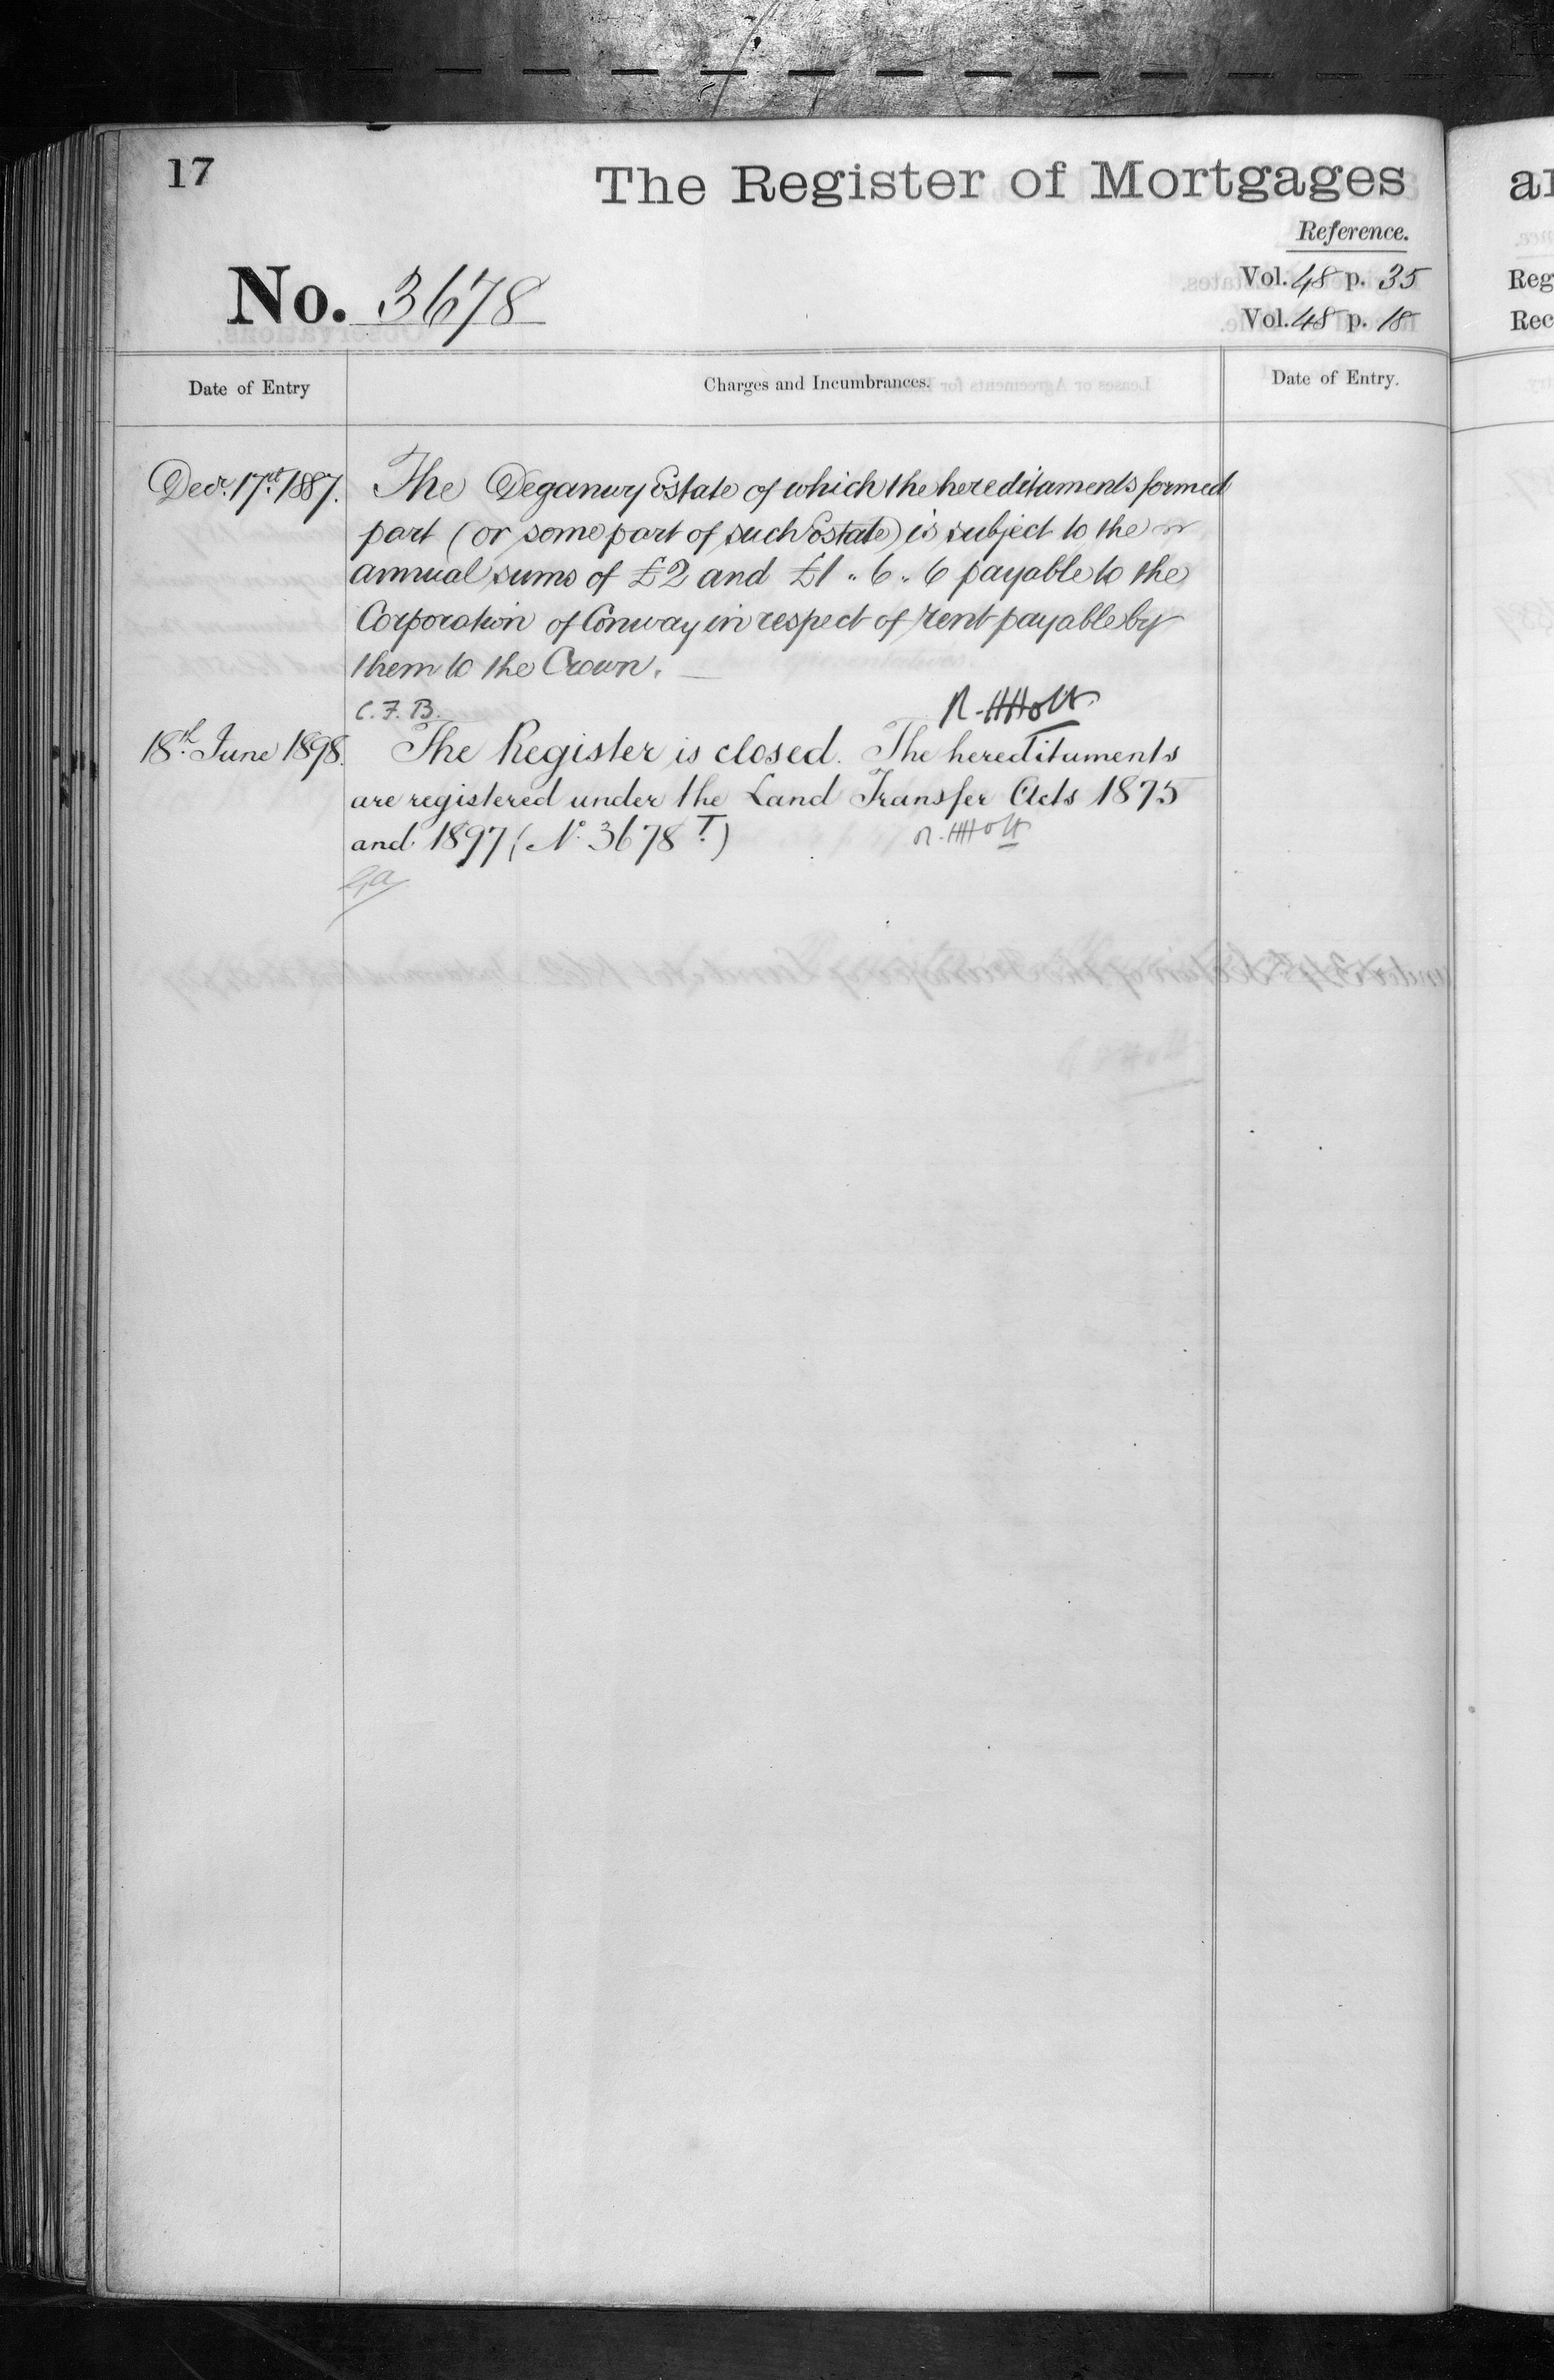 17
The Register of Mortgages
Reference.
No. 3678
Vol. 48 p. 35
Vol. 48 p. 18
Date of Entry
Charges and Incumbrances.
Date of Entry.
Decr. 17th 1887. The Deganwy Estate of which the hereditaments formed
part (or some part of such Estate) is subject to the
annual sums of £2 and £1 „ 6 „ 6 payable to the
Corporation of Conway in respect of rent payable by
them to the Crown.
C. F. B. R. H Holt
18th June 1898. The Register is closed. The hereditaments
are registered under the Land Transfer Acts 1875
and 1897 (No. 3678 T.) R. H Holt
Reg
Rec